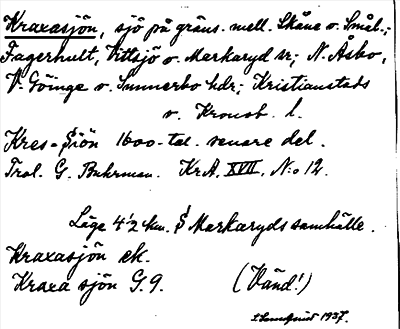 Kraxasjön, sjö på gräns. mell. Skåne o. Smål.;
Fagerhult, Vittsjö o. Markaryd sr; N. Åsbo,
V. Göinge o. Sunnerbo hdr; Kristianstads
o. Kronob. l.
Kres-Siön 1600-tal. senare del.
Trol. G. Buhrman. Kr.A. XVII, N:o 12.
Läge 4 1/2 km. S Markaryds samhälle.
Kraxasjön ek.
Kraxa sjön G. 9. (Vänd!)
1937.